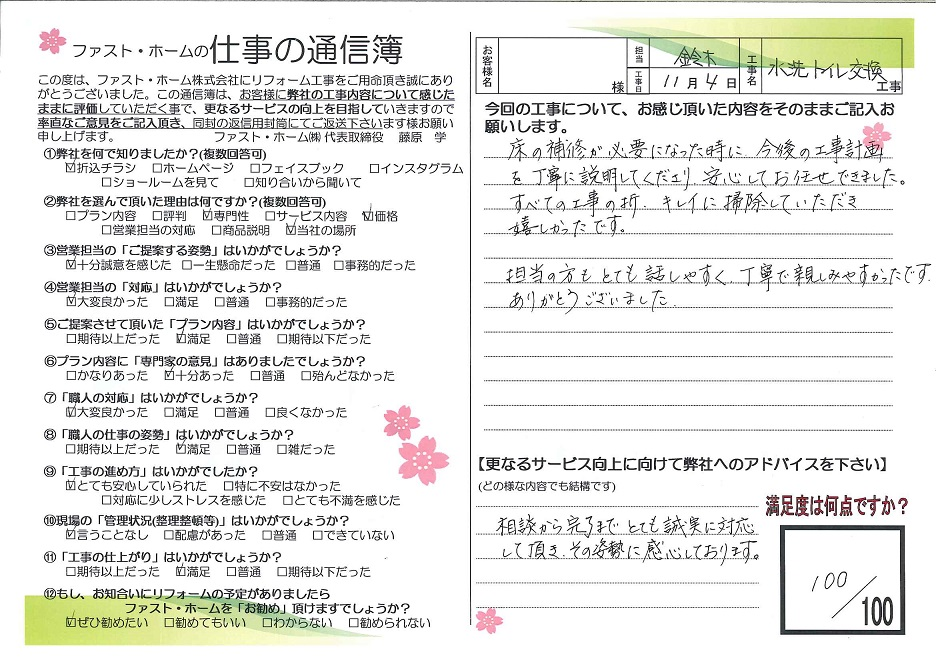 ファスト・ホームの仕事の通信簿
この度は、ファスト・ホーム株式会社にリフォーム工事をご用命頂き誠にあり
がとうございました。この通信簿は、お客様に弊社の工事内容について感じた
ままに評価していただく事で、更なるサービスの向上を目指していきますので
率直なご意見をご記入頂き、同封の返信用封筒にてご返送下さいます様お願い
申し上げます。 ファスト・ホーム㈱ 代表取締役 藤原 学
①弊社を何で知りましたか？(複数回答可)
☑折込チラシ □ホームページ □フェイスブック □インスタグラム
□ショールームを見て □知り合いから聞いて
②弊社を選んで頂いた理由は何ですか？(複数回答可)
□プラン内容 □評判 ☑専門性 □サービス内容 ☑価格
□営業担当の対応 □商品説明 ☑当社の場所
③営業担当の「ご提案する姿勢」はいかがでしょうか？
☑十分誠意を感じた □一生懸命だった □普通 □事務的だった
④営業担当の「対応」はいかがでしょうか？
☑大変良かった □満足 □普通 □事務的だった
⑤ご提案させて頂いた「プラン内容」はいかがでしょうか？
□期待以上だった ☑満足 □普通 □期待以下だった
⑥プラン内容に「専門家の意見」はありましたでしょうか？
□かなりあった ☑十分あった □普通 □殆んどなかった
⑦「職人の対応」はいかがでしょうか？
☑大変良かった □満足 □普通 □良くなかった
⑧「職人の仕事の姿勢」はいかがでしょうか？
□期待以上だった ☑満足 □普通 □雑だった
⑨「工事の進め方」はいかがでしたか？
☑とても安心していられた □特に不安はなかった
□対応に少しストレスを感じた □とても不満を感じた
⑩現場の「管理状況(整理整頓等)」はいかがでしょうか？
☑言うことなし □配慮があった □普通 □できていない
⑪「工事の仕上がり」はいかがでしょうか？
□期待以上だった ☑満足 □普通 □期待以下だった
⑫もし、お知合いにリフォームの予定がありましたら
ファスト・ホームを「お勧め」頂けますでしょうか？
☑ぜひ勧めたい □勧めてもいい □わからない □勧められない
お客様名 様 担当 鈴木 工事日 11月4日 工事名 水洗トイレ交換 工事
今回の工事について、お感じ頂いた内容をそのままご記入お
願いします。
床の補修が必要になった時に、今後の工事計画
を丁寧に説明してくださり安心してお任せできました。
すべての工事の折、キレイに掃除していただき
嬉しかったです。
担当の方もとても話しやすく、丁寧で親しみやすかったです.
ありがとうございました.
【更なるサービス向上に向けて弊社へのアドバイスを下さい】
(どの様な内容でも結構です)
満足度は何点ですか？
相談から完了までとても誠実に対応
して頂き、その姿勢に感心しております。
100／100